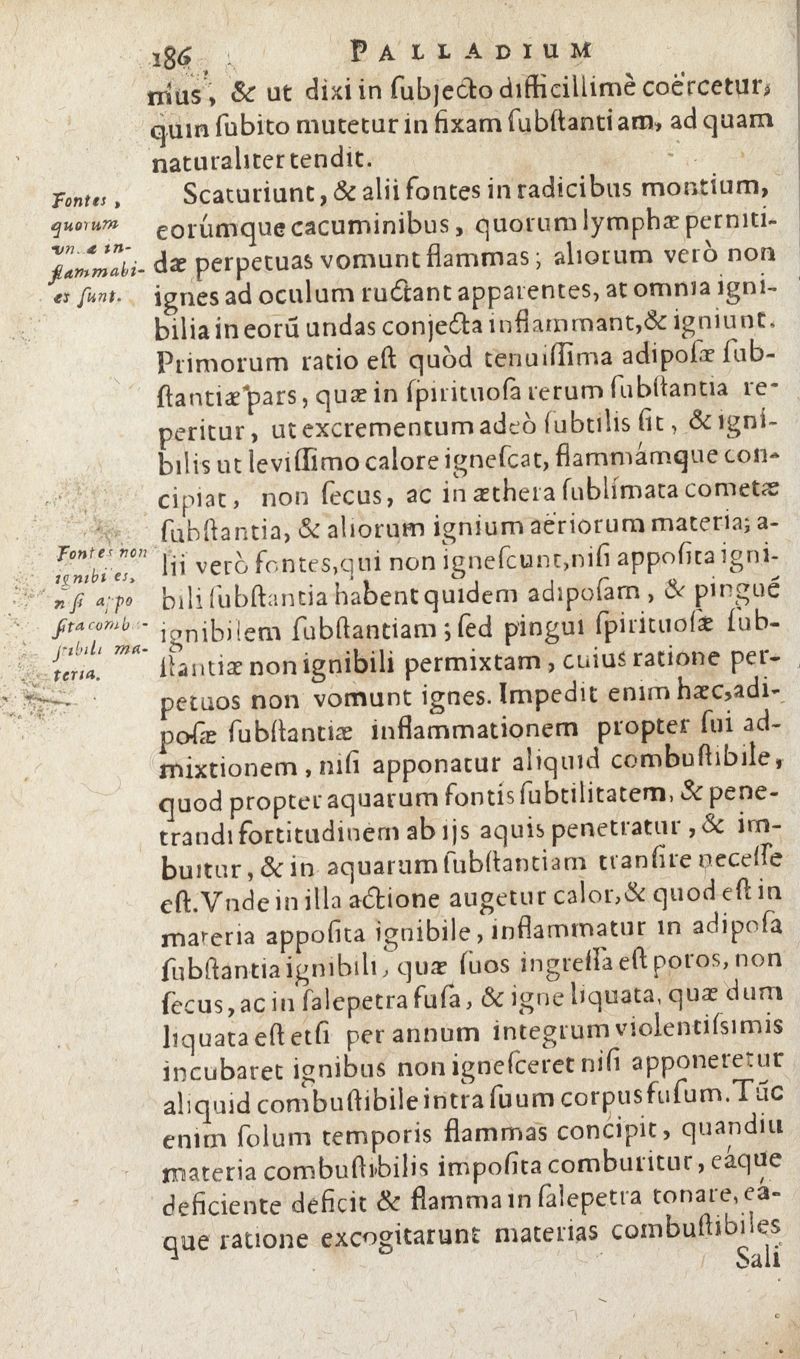 186 PALLADIUM
mus, & ut dixi in ſubjecto difficillimè coërcetur,
quin ſubito mutetur in fixam ſubſtantiam, ad quam
naturaliter tendit.
Scaturiunt, & alii fontes in radicibus montium,
eorúmque cacuminibus, quorum lymphæ perniti-
dæ perpetuas vomunt flammas; aliorum verò non
ignes ad oculum ructant apparentes, at omnia igni-
bilia in eorũ undas conjecta inflammant, & igniunt.
Primorum ratio eſt quòd tenuiſſima adipoſæ ſub-
ſtantiæ pars, quæ in ſpirituoſa rerum ſubſtantia re-
peritur, ut excrementum adeò ſubtilis ſit, & igni-
bilis ut leviſſimo calore igneſcat, flammámque con-
cipiat, non ſecus, ac in æthera ſublimata cometæ
ſubſtantia, & aliorum ignium aëriorum materia; a-
lii verò fontes, qui non igneſcunt, niſi appoſita igni-
bili ſubſtantia habent quidem adipoſam, & pingue
ignibilem ſubſtantiam; ſed pingui ſpirituoſæ ſub-
ſtantiæ non ignibili permixtam, cuius ratione per-
petuos non vomunt ignes. Impedit enim hæc, adi-
poſæ ſubſtantiæ inflammationem propter ſui ad-
mixtionem, niſi apponatur aliquid combuſtibile,
quod propter aquarum fontis ſubtilitatem, & pene-
trandi fortitudinem ab ijs aquis penetratur, & im-
buitur, & in aquarum ſubſtantiam tranſire neceſſe
eſt. Vnde in illa actione augetur calor, & quod eſt in
materia appoſita ignibile, inflammatur in adipoſa
ſubſtantia ignibili, quæ ſuos ingreſſa eſt poros, non
ſecus, ac in ſalepetra fuſa, & igne liquata, quæ dum
liquata eſt etſi per annum integrum violentiſsimis
incubaret ignibus non igneſceret niſi apponeretur
aliquid combuſtibile intra ſuum corpus fuſum. Tũc
enim ſolum temporis flammas concipit, quandiu
materia combuſtibilis impoſita comburitur, eáque
deficiente deficit & flamma in ſalepetra tonare, eá-
que ratione excogitarunt materias combuſtibiles
Sali
Fontes,
quorum
in-
flammabi-
es ſunt.
Fontes non
ignibi es,
n ſi appo
ſita comb -
ma-
teria.